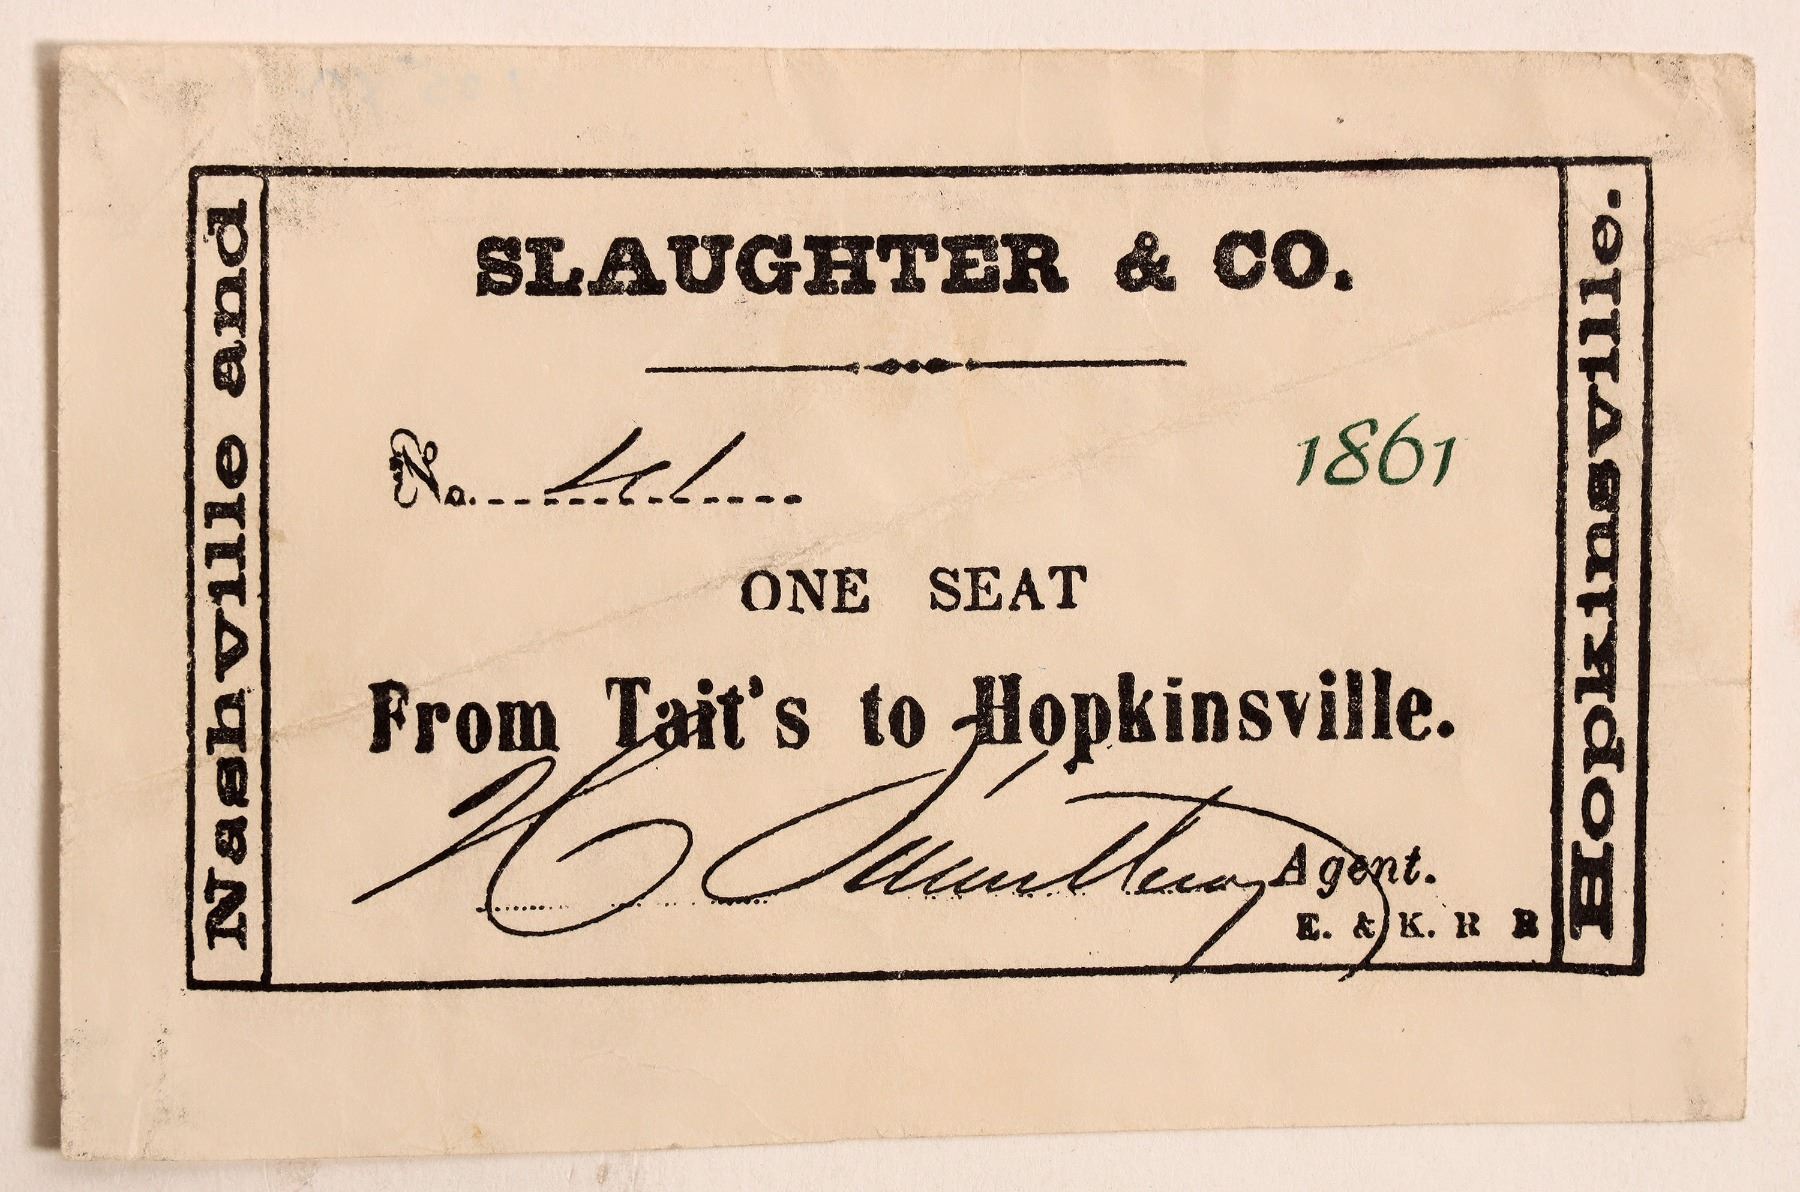 Nashville and
SLAUGHTER & CO.
No. 41
1861
ONE SEAT
From Tait's to Hopkinsville.
Agent.
E. & K. R R
Hopkinsville.